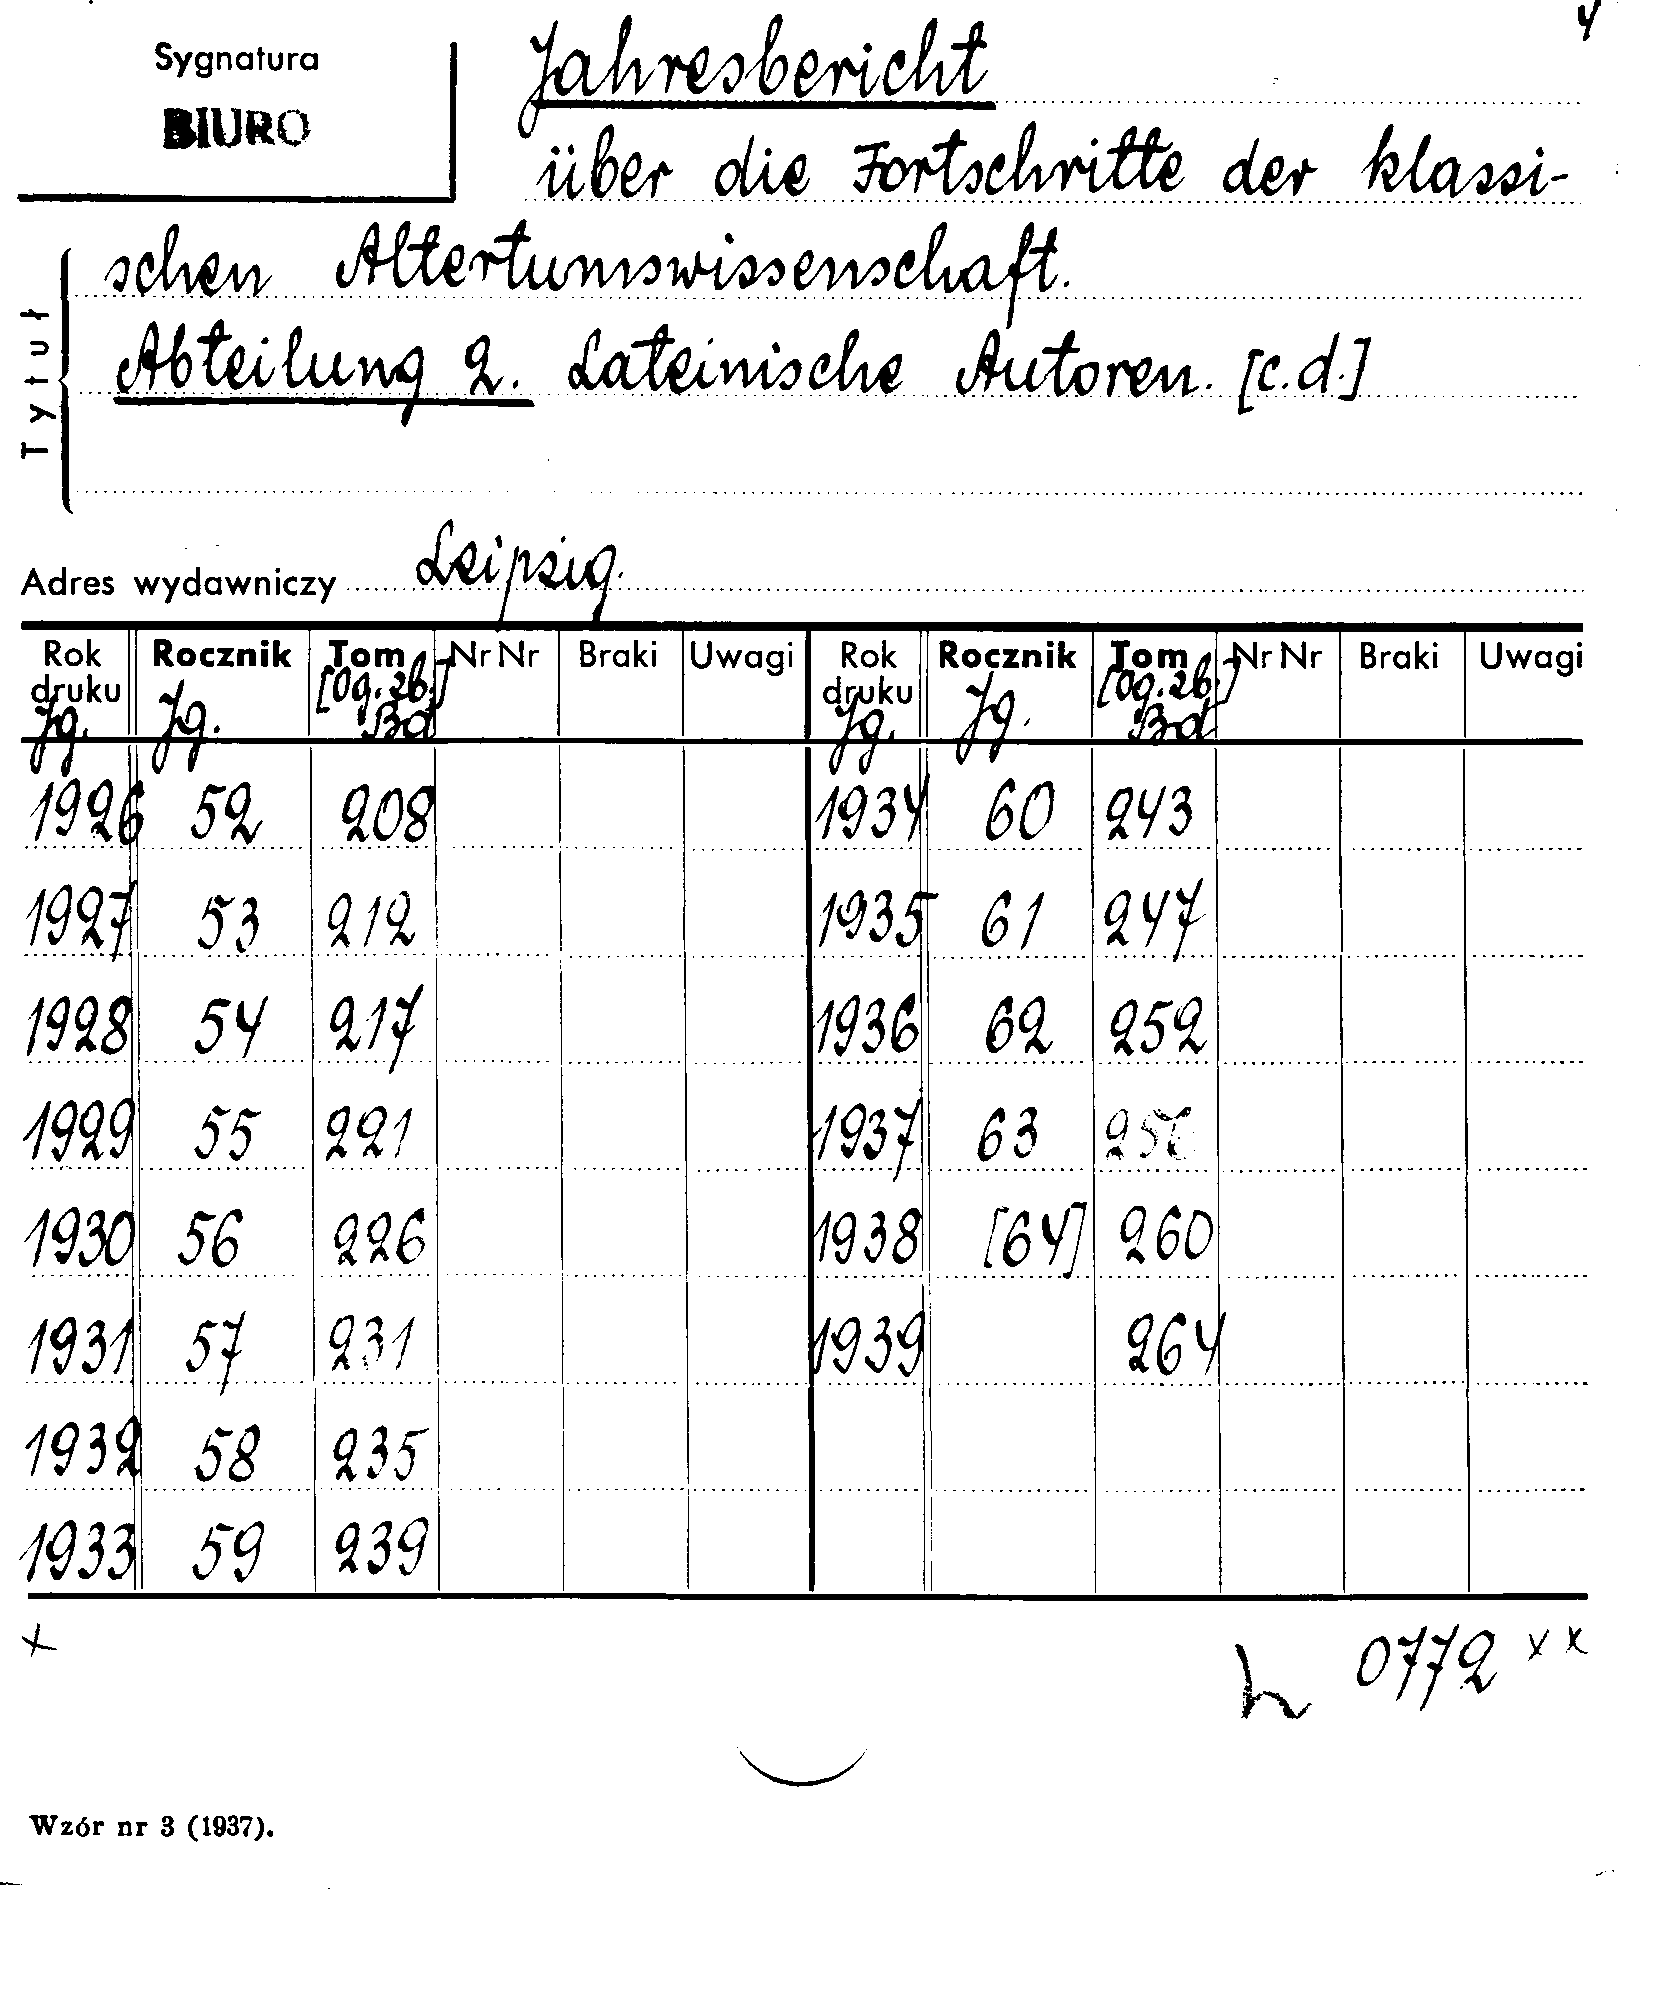 4
Sygnatura
BIURO
Jahresbericht
über die Fortschritte der klassi-
schen Altertumswissenschaft.
Abteilung 2. Lateinische Autoren. [c.d.]
Tytuł
Adres wydawniczy Leipzig.
Rok druku Rocznik Tom Nr Nr Braki Uwagi Rok druku Rocznik Tom Nr Nr Braki Uwagi
Jg. Jg. [Og. zb.] Bd Jg. Jg. [Og. zb.] Bd
1926 52 208 1934 60 243
1927 53 212 1935 61 247
1928 54 217 1936 62 252
1929 55 221 1937 63
1930 56 226 1938 [64] 260
1931 57 231 1939 264
1932 58 235
1933 59 239
x
0772 x x
Wzór nr 3 (1937).